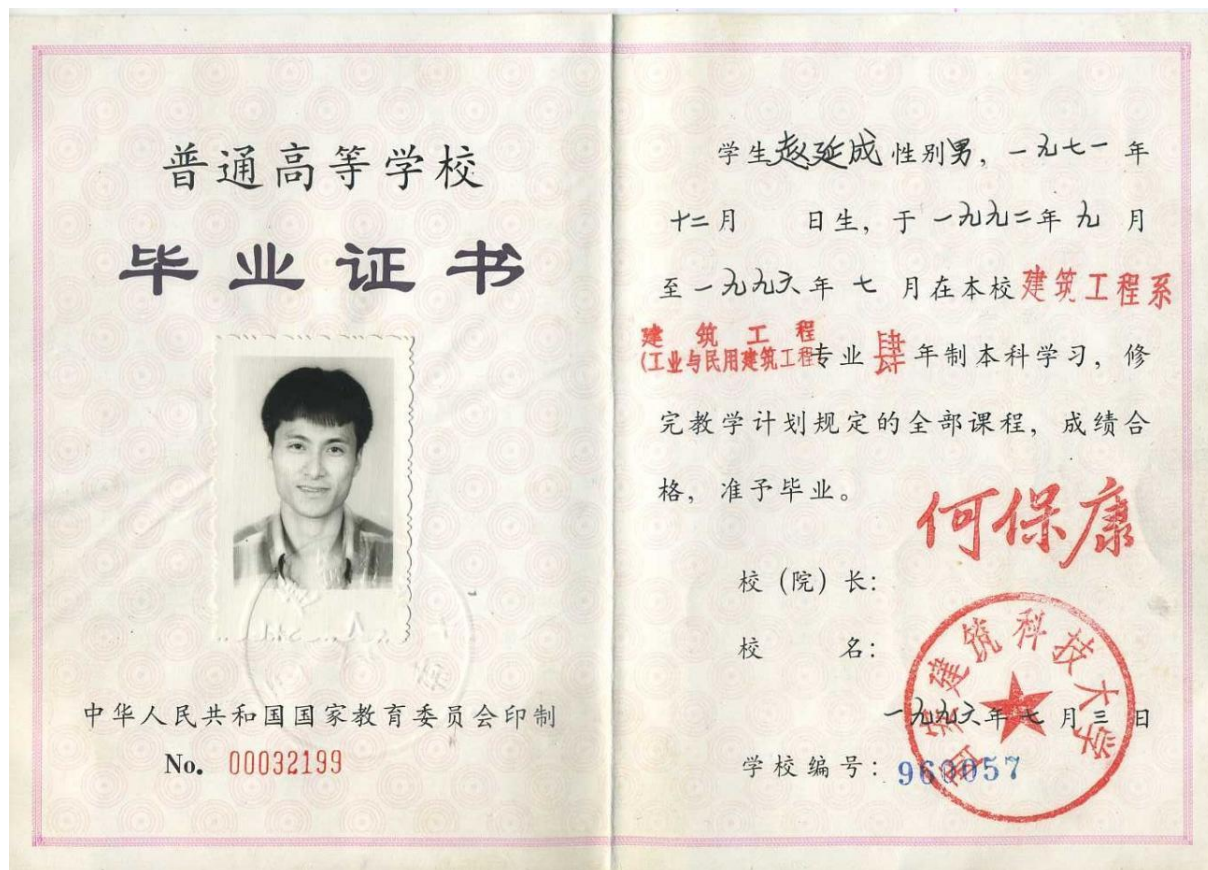 普通高等学校
毕业证书
中华人民共和国国家教育委员会印制
No. 00032199
学生赵延成性别男，一九七一年
十二月 日生，于一九九二年九月
至一九九六年七月在本校建筑工程系
建筑工程
(工业与民用建筑工程专业肆年制本科学习，修
完教学计划规定的全部课程，成绩合
格，准予毕业。
何保康
校（院）长：
校 名：
西安建筑科技大学
一九九六年七月三日
学校编号：960057